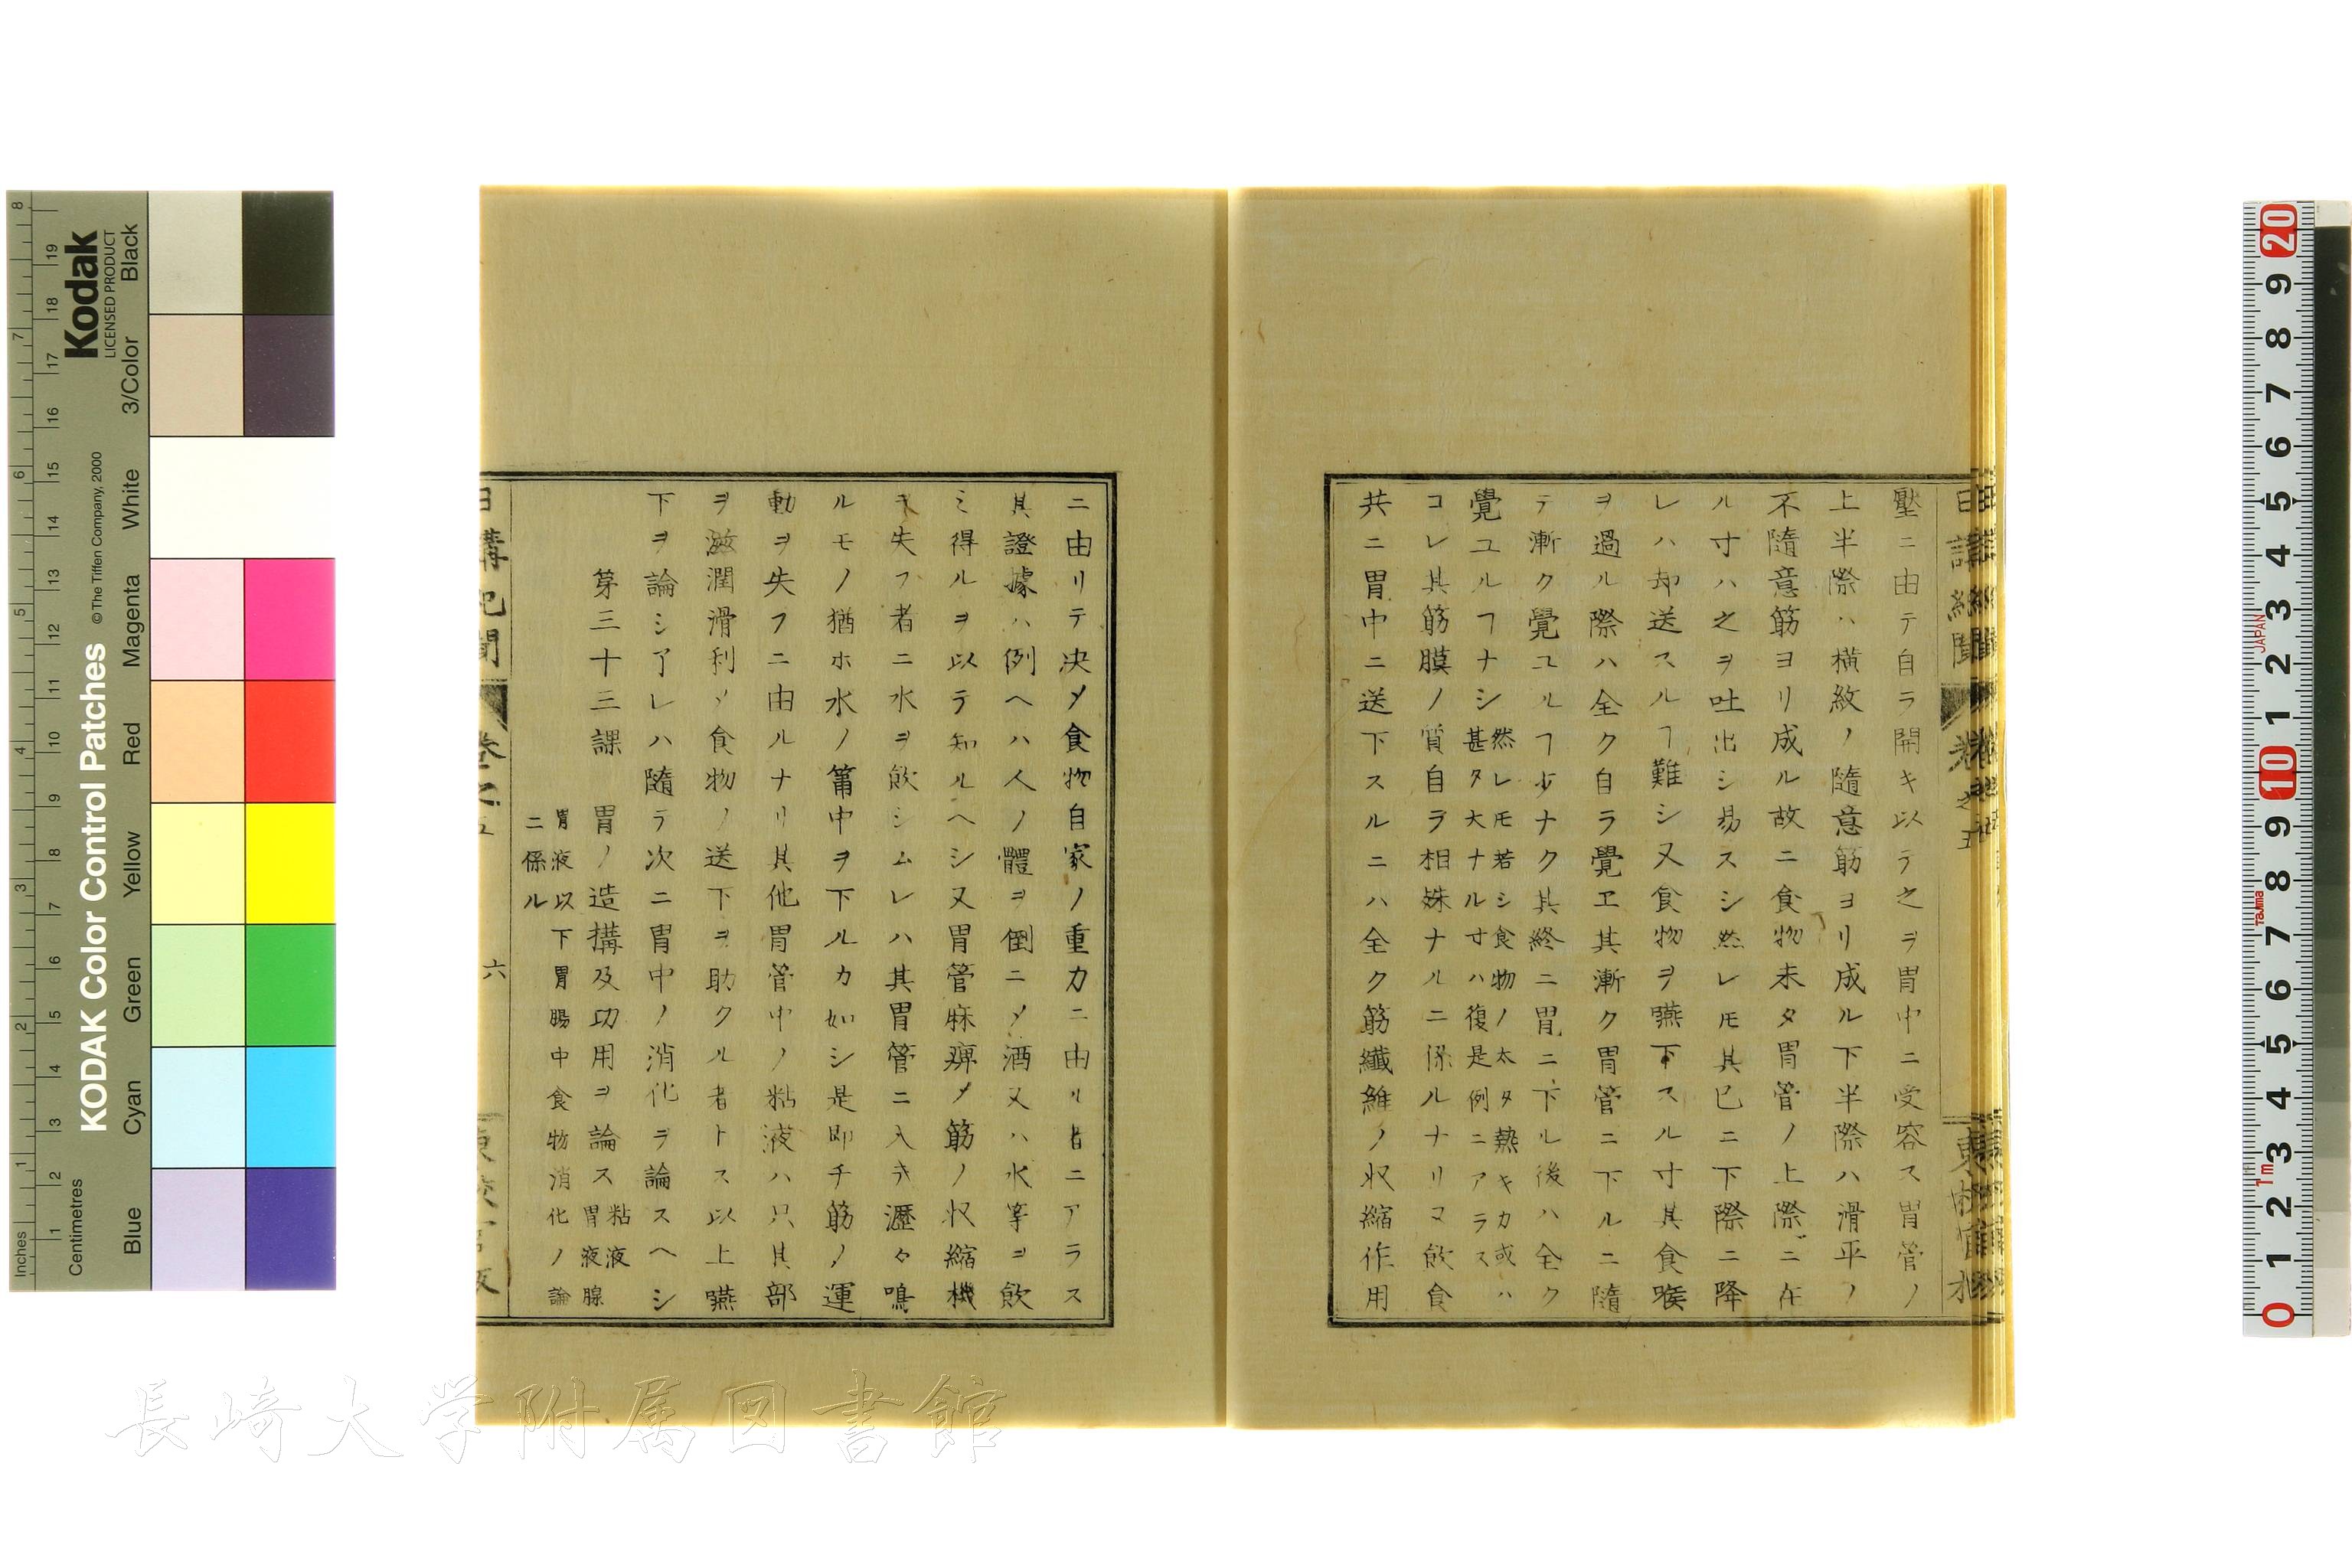 壓ニ由テ自ラ開キ以テ之ヲ胃中ニ受容ス胃管ノ
上半際ハ橫紋ノ隨意筋ヨリ成ル下半際ハ滑平ノ
不隨意筋ヨリ成ル故ニ食物未タ胃管ノ上際ニ在
ル寸ハ之ヲ吐出シ易スシ然レ𪜈其已ニ下際ニ降
レハ却送スルヿ難シ又食物ヲ嚥下スル寸其食喉
ヲ過ル際ハ全ク自ラ覺エ其漸ク胃管ニ下ルニ隨
テ漸ク覺ユルヿ少ナク其終ニ胃ニ下ル後ハ全ク
覺ユルヿナシ然レ𪜈若シ食物ノ太タ熱キカ或ハ
甚タ大ナル寸ハ復是例ニアラス
コレ其筋膜ノ質自ラ相殊ナルニ係ルナリ又飮食
共ニ胃中ニ送下スルニハ全ク筋纖維ノ収縮作用
ニ由リテ决〆食物自家ノ重力ニ由ル者ニアラス
其證據ハ例ヘハ人ノ體ヲ倒ニ〆酒又ハ水等ヲ飮
ミ得ルヲ以テ知ルヘシ又胃管麻痹〆筋ノ収縮機
ヲ失フ者ニ水ヲ飮シムレハ其胃管ニ入テ瀝々鳴
ルモノ猶ホ水ノ筩中ヲ下ルカ如シ是即チ筋ノ運
動ヲ失フニ由ルナリ其他胃管中ノ粘液ハ只其部
ヲ滋潤滑利〆食物ノ送下ヲ助クル者トス以上嚥
下ヲ論シ了レハ隨テ次ニ胃中ノ消化ヲ論スヘシ
第三十三課 胃ノ造構及功用ヲ論ス 粘液
胃液腺
胃液以下胃腸中食物消化ノ論
ニ係ル
日講記聞 卷之五 六
KODAK Color Control Patches
© The Tiffen Company, 2000
Kodak
LICENSED PRODUCT
Inches 1 2 3 4 5 6 7 8
Centimetres 1 2 3 4 5 6 7 8 9 10 11 12 13 14 15 16 17 18 19
Blue Cyan Green Yellow Red Magenta White 3/Color Black
0 1 2 3 4 5 6 7 8 9 10 1 2 3 4 5 6 7 8 9 20
1m Tajima JAPAN
長崎大学附属図書館